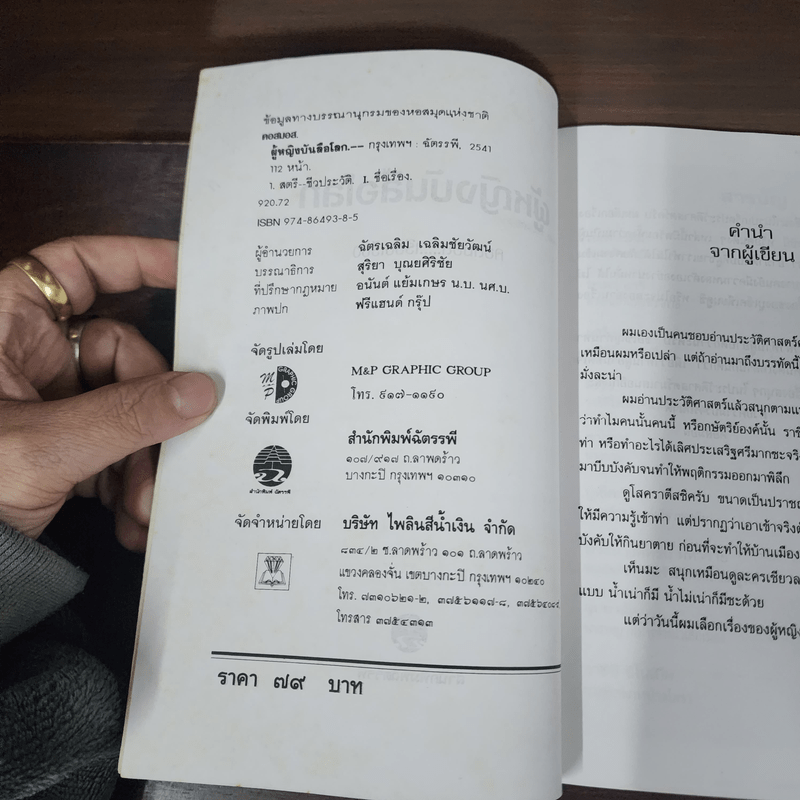 ข้อมูลทางบรรณานุกรมของหอสมุดแห่งชาติ
คอสมอส.
ผู้หญิงบันลือโลก.-- กรุงเทพฯ : ฉัตรรพี, 2541
112 หน้า.
1. สตรี--ชีวประวัติ. I. ชื่อเรื่อง.
920.72
ISBN 974-86493-8-5
ผู้อำนวยการ ฉัตรเฉลิม เฉลิมชัยวัฒน์
บรรณาธิการ สุริยา บุณยศิริชัย
ที่ปรึกษากฎหมาย อนันต์ แย้มเกษร น.บ. นศ.บ.
ภาพปก ฟรีแฮนด์ กรุ๊ป
จัดรูปเล่มโดย
M&P GRAPHIC GROUP
โทร. ๙๑๗-๑๑๙๐
จัดพิมพ์โดย
สำนักพิมพ์ฉัตรรพี
๑๐๗/๙๑๗ ถ.ลาพดร้าว
บางกะปิ กรุงเทพฯ ๑๐๓๑๐
สำนักพิมพ์ ฉัตรรพี
จัดจำหน่ายโดย บริษัท ไพลินสีน้ำเงิน จำกัด
๘๓๔/๒ ซ.ลาดพร้าว ๑๐๑ ถ.ลาดพร้าว
แขวงคลองจั่น เขตบางกะปิ กรุงเทพฯ ๑๐๒๔๐
โทร. ๗๓๑๐๖๒๑-๒, ๓๗๕๖๑๑๗-๘,
โทรสาร ๓๗๕๔๓๑๓
ราคา ๗๙ บาท
คำนำ
จากผู้เขียน
ผมเองเป็นคนชอบอ่านประวัติศาสตร์
เหมือนผมหรือเปล่า แต่ถ้าอ่านมาถึงบรรทัดนี้
มั่งละน่า
ผมอ่านประวัติศาสตร์แล้วสนุกตาม
ว่าทำไมคนนั้นคนนี้ หรือกษัตริย์องค์นั้น
ท่า หรือทำอะไรได้เลิศประเสริฐศรีมากซะจริง
มาบีบบังคับจนทำให้พฤติกรรมออกมาพิลึก
ดูโสคราตีสซิครับ ขนาดเป็นปราชญ์
ให้มีความรู้เข้าท่า แต่ปรากฏว่าเอาเข้าจริง
บังคับให้กินยาตาย ก่อนที่จะทำให้บ้านเมือง
เห็นมะ สนุกเหมือนดูละครเชียว
แบบ น้ำเน่าก็มี น้ำไม่เน่าก็มีซะด้วย
แต่ว่าวันนี้ผมเลือกเรื่องของผู้หญิง